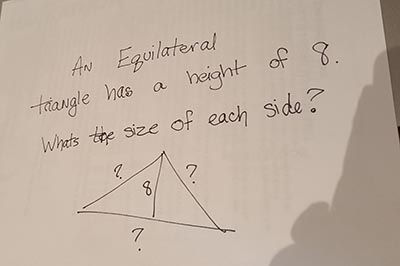 An Equilateral
triangle has a height of 8.
Whats the size of each side?
?
?
8
?